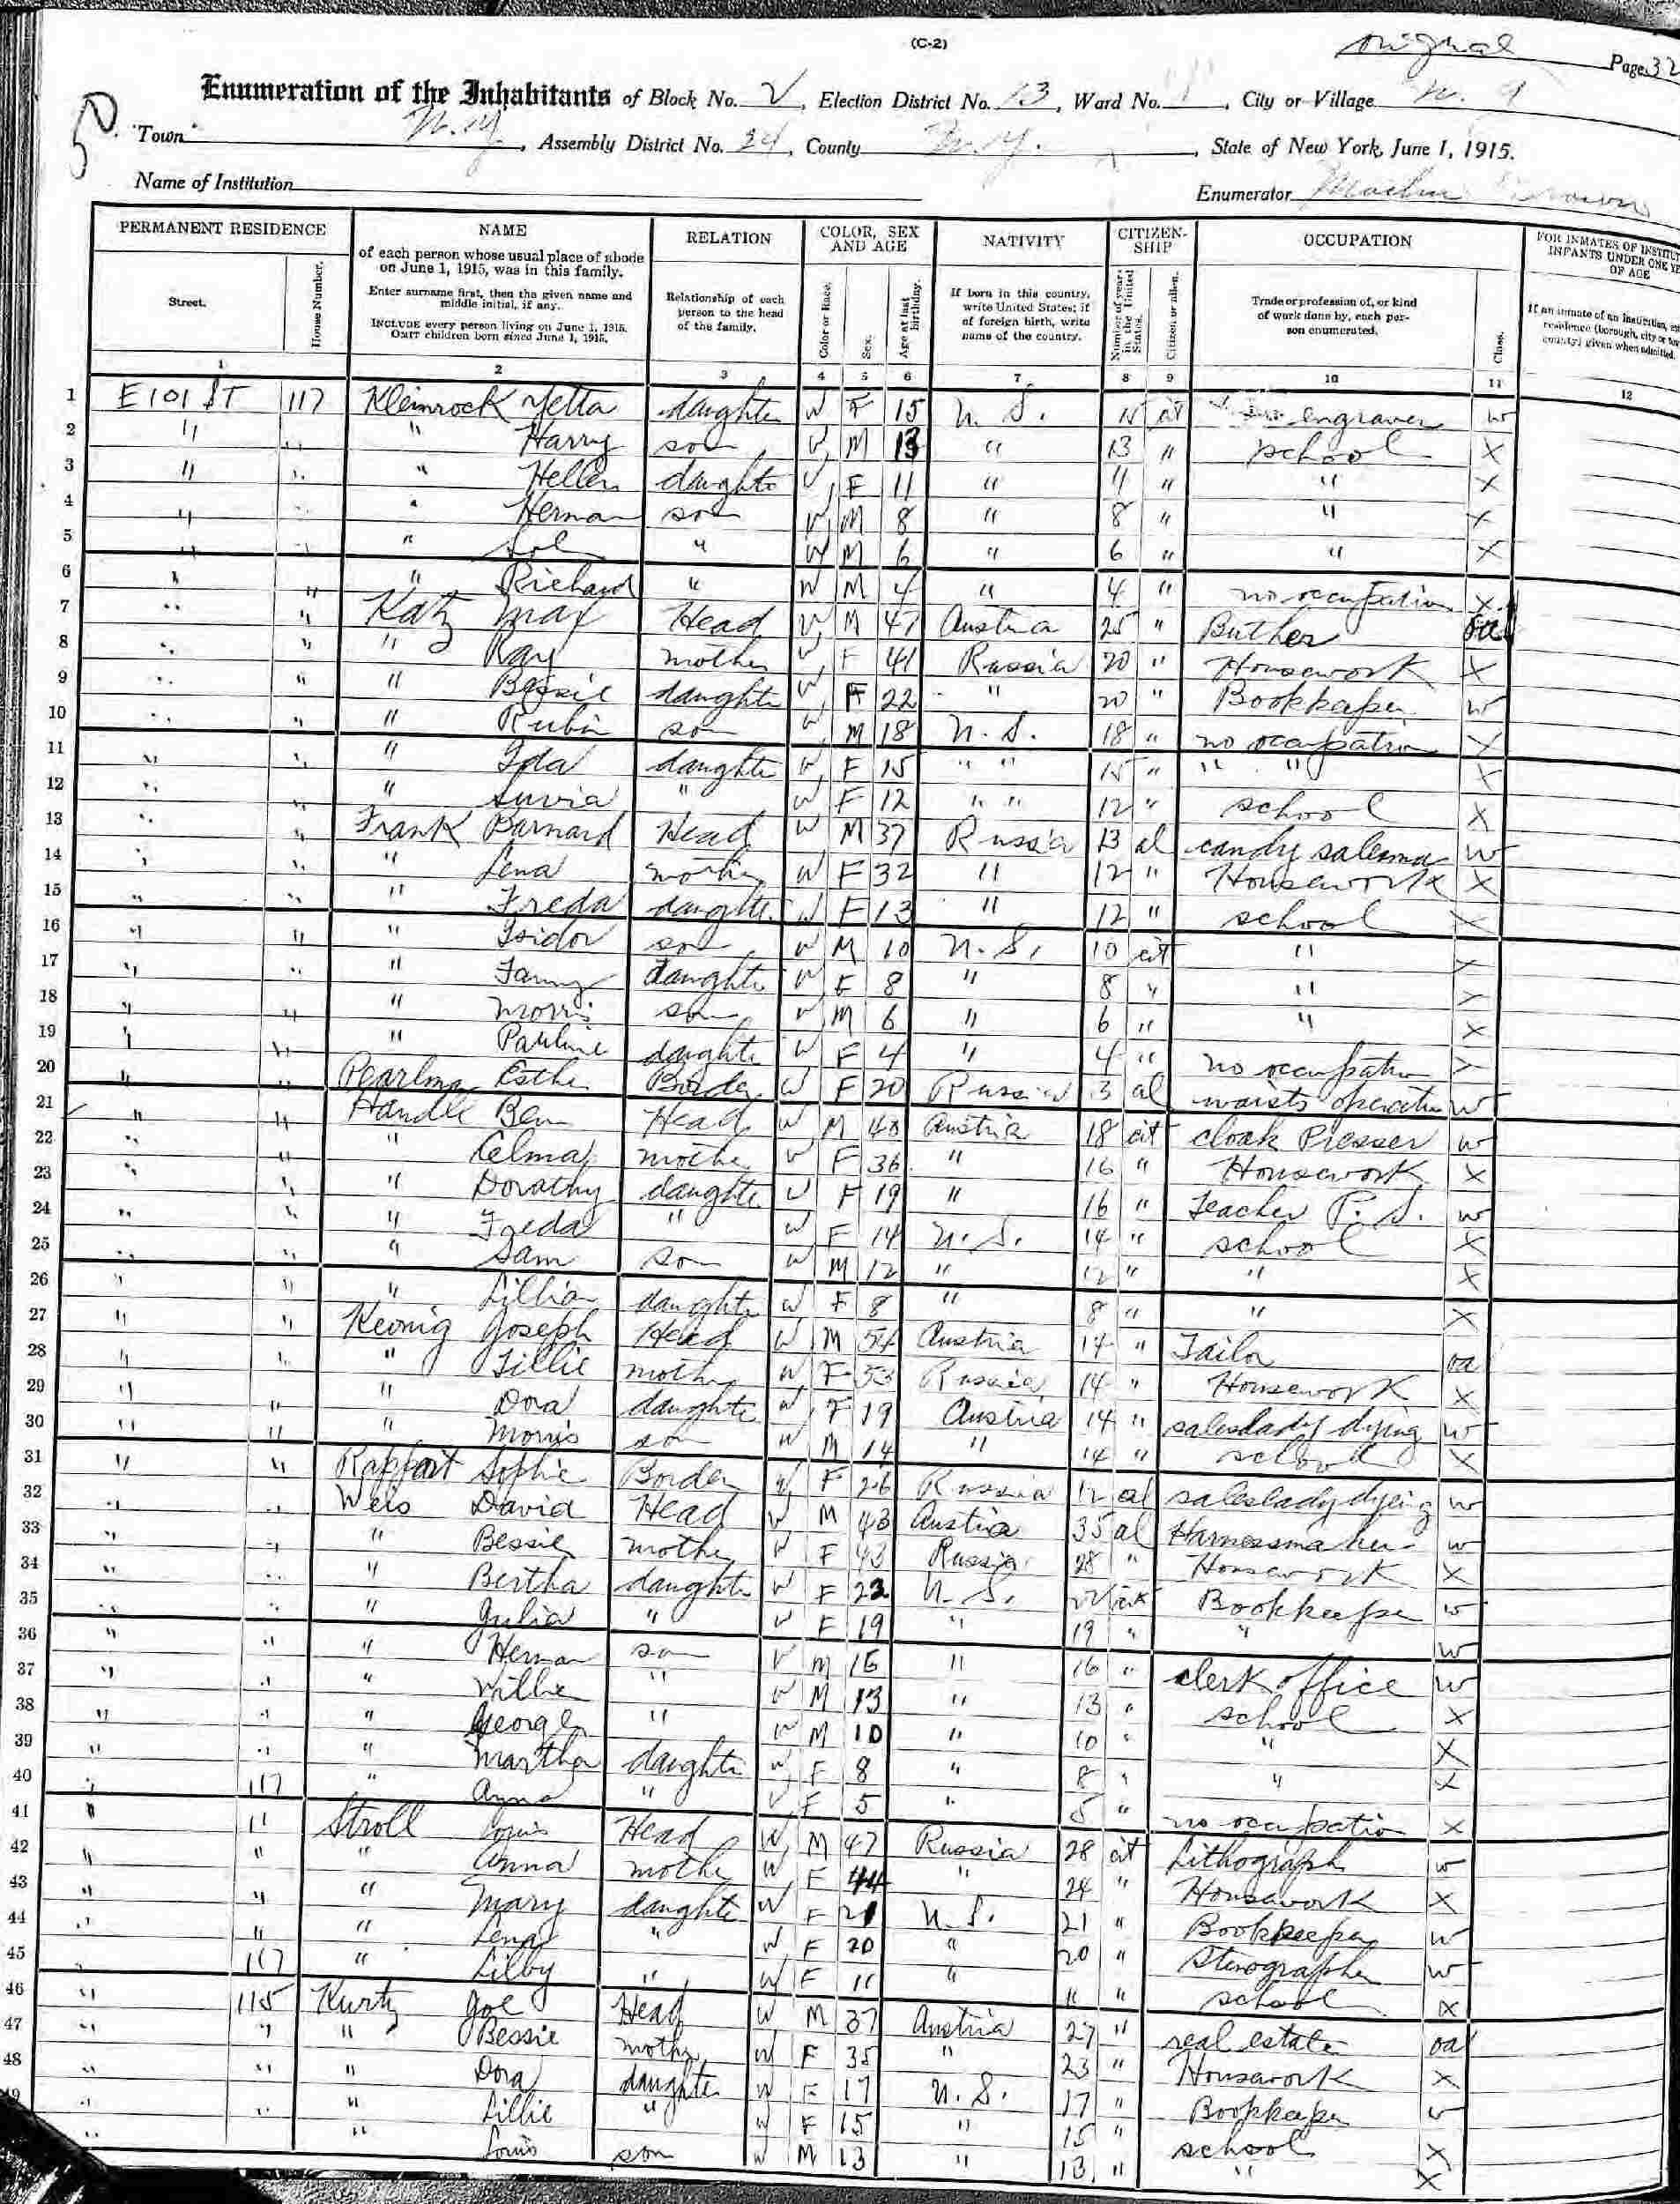 (C-2)
original Page 32
Enumeration of the Inhabitants of Block No. V, Election District No. 13, Ward No. , City or Village
Town N.Y., Assembly District No. 34, County N.Y., State of New York, June 1, 1915.
Name of Institution Enumerator
PERMANENT RESIDENCE NAME RELATION COLOR, SEX AND AGE NATIVITY CITIZENSHIP OCCUPATION FOR INMATES OF INSTITUT INFANTS UNDER ONE YE OF AGE
Street. House Number. of each person whose usual place of abode on June 1, 1915, was in this family. Enter surname first, then the given name and middle initial, if any. INCLUDE every person living on June 1, 1915. OMIT children born since June 1, 1915. Relationship of each person to the head of the family. Color or Race. Sex. Age at last birthday. If born in this country, write United States; if of foreign birth, write name of the country. Number of years in the United States. Citizen or alien. Trade or profession of, or kind of work done by, each person enumerated. Class. If an inmate of an institution, residence (borough, city or county) given when admitted.
1 2 3 4 5 6 7 8 9 10 11 12
1 E 101 ST 117 Kleinrock Yetta daughte W F 15 U. S. 15 cit engraver w
2 " " " Harry son W M 13 " 13 " school X
3 " " " Hellen daughte W F 11 " 11 " " X
4 " " " Herman son W M 8 " 8 " " X
5 " " " Sol " W M 6 " 6 " " X
6 " " " Richard " W M 4 " 4 " no occupation X
7 " " Katz Max Head W M 47 Austria 25 " Buther oa
8 " " " Ray mother W F 41 Russia 20 " Housework X
9 " " " Bessie daughte W F 22 " 20 " Bookkeeper w
10 " " " Rubin son W M 18 U. S. 18 " no occupation X
11 " " " Ida daughte W F 15 " " 15 " " " X
12 " " " Suvia " W F 12 " " 12 " school X
13 " " Frank Barnard Head W M 37 Russia 13 al candy salesma w
14 " " " Lena mother W F 32 " 12 " Housework X
15 " " " Freda daughte W F 13 " 12 " school X
16 " " " Isidor son W M 10 U. S. 10 cit " X
17 " " " Fanny daughte W F 8 " 8 " " X
18 " " " Morris son W M 6 " 6 " " X
19 " " " Pauline daughte W F 4 " 4 " no occupation X
20 " " Pearlma Esther Border W F 20 Russia 3 al waists operator w
21 " " Handel Ben Head W M 40 Austria 18 cit cloak Presser w
22 " " " Celma mother W F 36 " 16 " Housework X
23 " " " Dorothy daughte W F 19 " 16 " Teacher P. S. w
24 " " " Freda " W F 14 U. S. 14 " school X
25 " " " Sam son W M 12 " 12 " " X
26 " " " Lillian daughte W F 8 " 8 " " X
27 " " Keonig Joseph Head W M 54 Austria 14 " Tailor oa
28 " " " Tillie mother W F 53 Russia 14 " Housework X
29 " " " Dora daughte W F 19 Austria 14 " saleslady dying w
30 " " " Morris son W M 14 " 14 " school X
31 " " Rapport Sophie Border W F 26 Russia 12 al saleslady dyeing w
32 " " Weis David Head W M 43 Austria 35 al Harnessmaker w
33 " " " Bessie mother W F 43 Russia 28 " Housework X
34 " " " Bertha daughte W F 22 U. S. 22 cit Bookkeeper w
35 " " " Julia " W F 19 " 19 " " w
36 " " " Herman son W M 16 " 16 " clerk office w
37 " " " Willie " W M 13 " 13 " school X
38 " " " George " W M 10 " 10 " " X
39 " " " Martha daughte W F 8 " 8 " " X
40 " 117 " Anna " W F 5 " 5 " no occupation X
41 " 11 Stroll Louis Head W M 47 Russia 28 cit Lithograph w
42 " " " Anna mothe W F 44 " 24 " Housework X
43 " " " Mary daughte W F 21 U. S. 21 " Bookkeeper w
44 " " " Lena " W F 20 " 20 " Stenographer w
45 " 117 " Lilby " W F 11 " 11 " school X
46 " 115 Kurtz Joe Head W M 37 Austria 27 " real estate oa
47 " " " Bessie mothe W F 35 " 23 " Housework X
48 " " " Dora daughte W F 17 U. S. 17 " Bookkeeper w
49 " " " Lillie " W F 15 " 15 " school X
" " Louis son W M 13 " 13 " " X